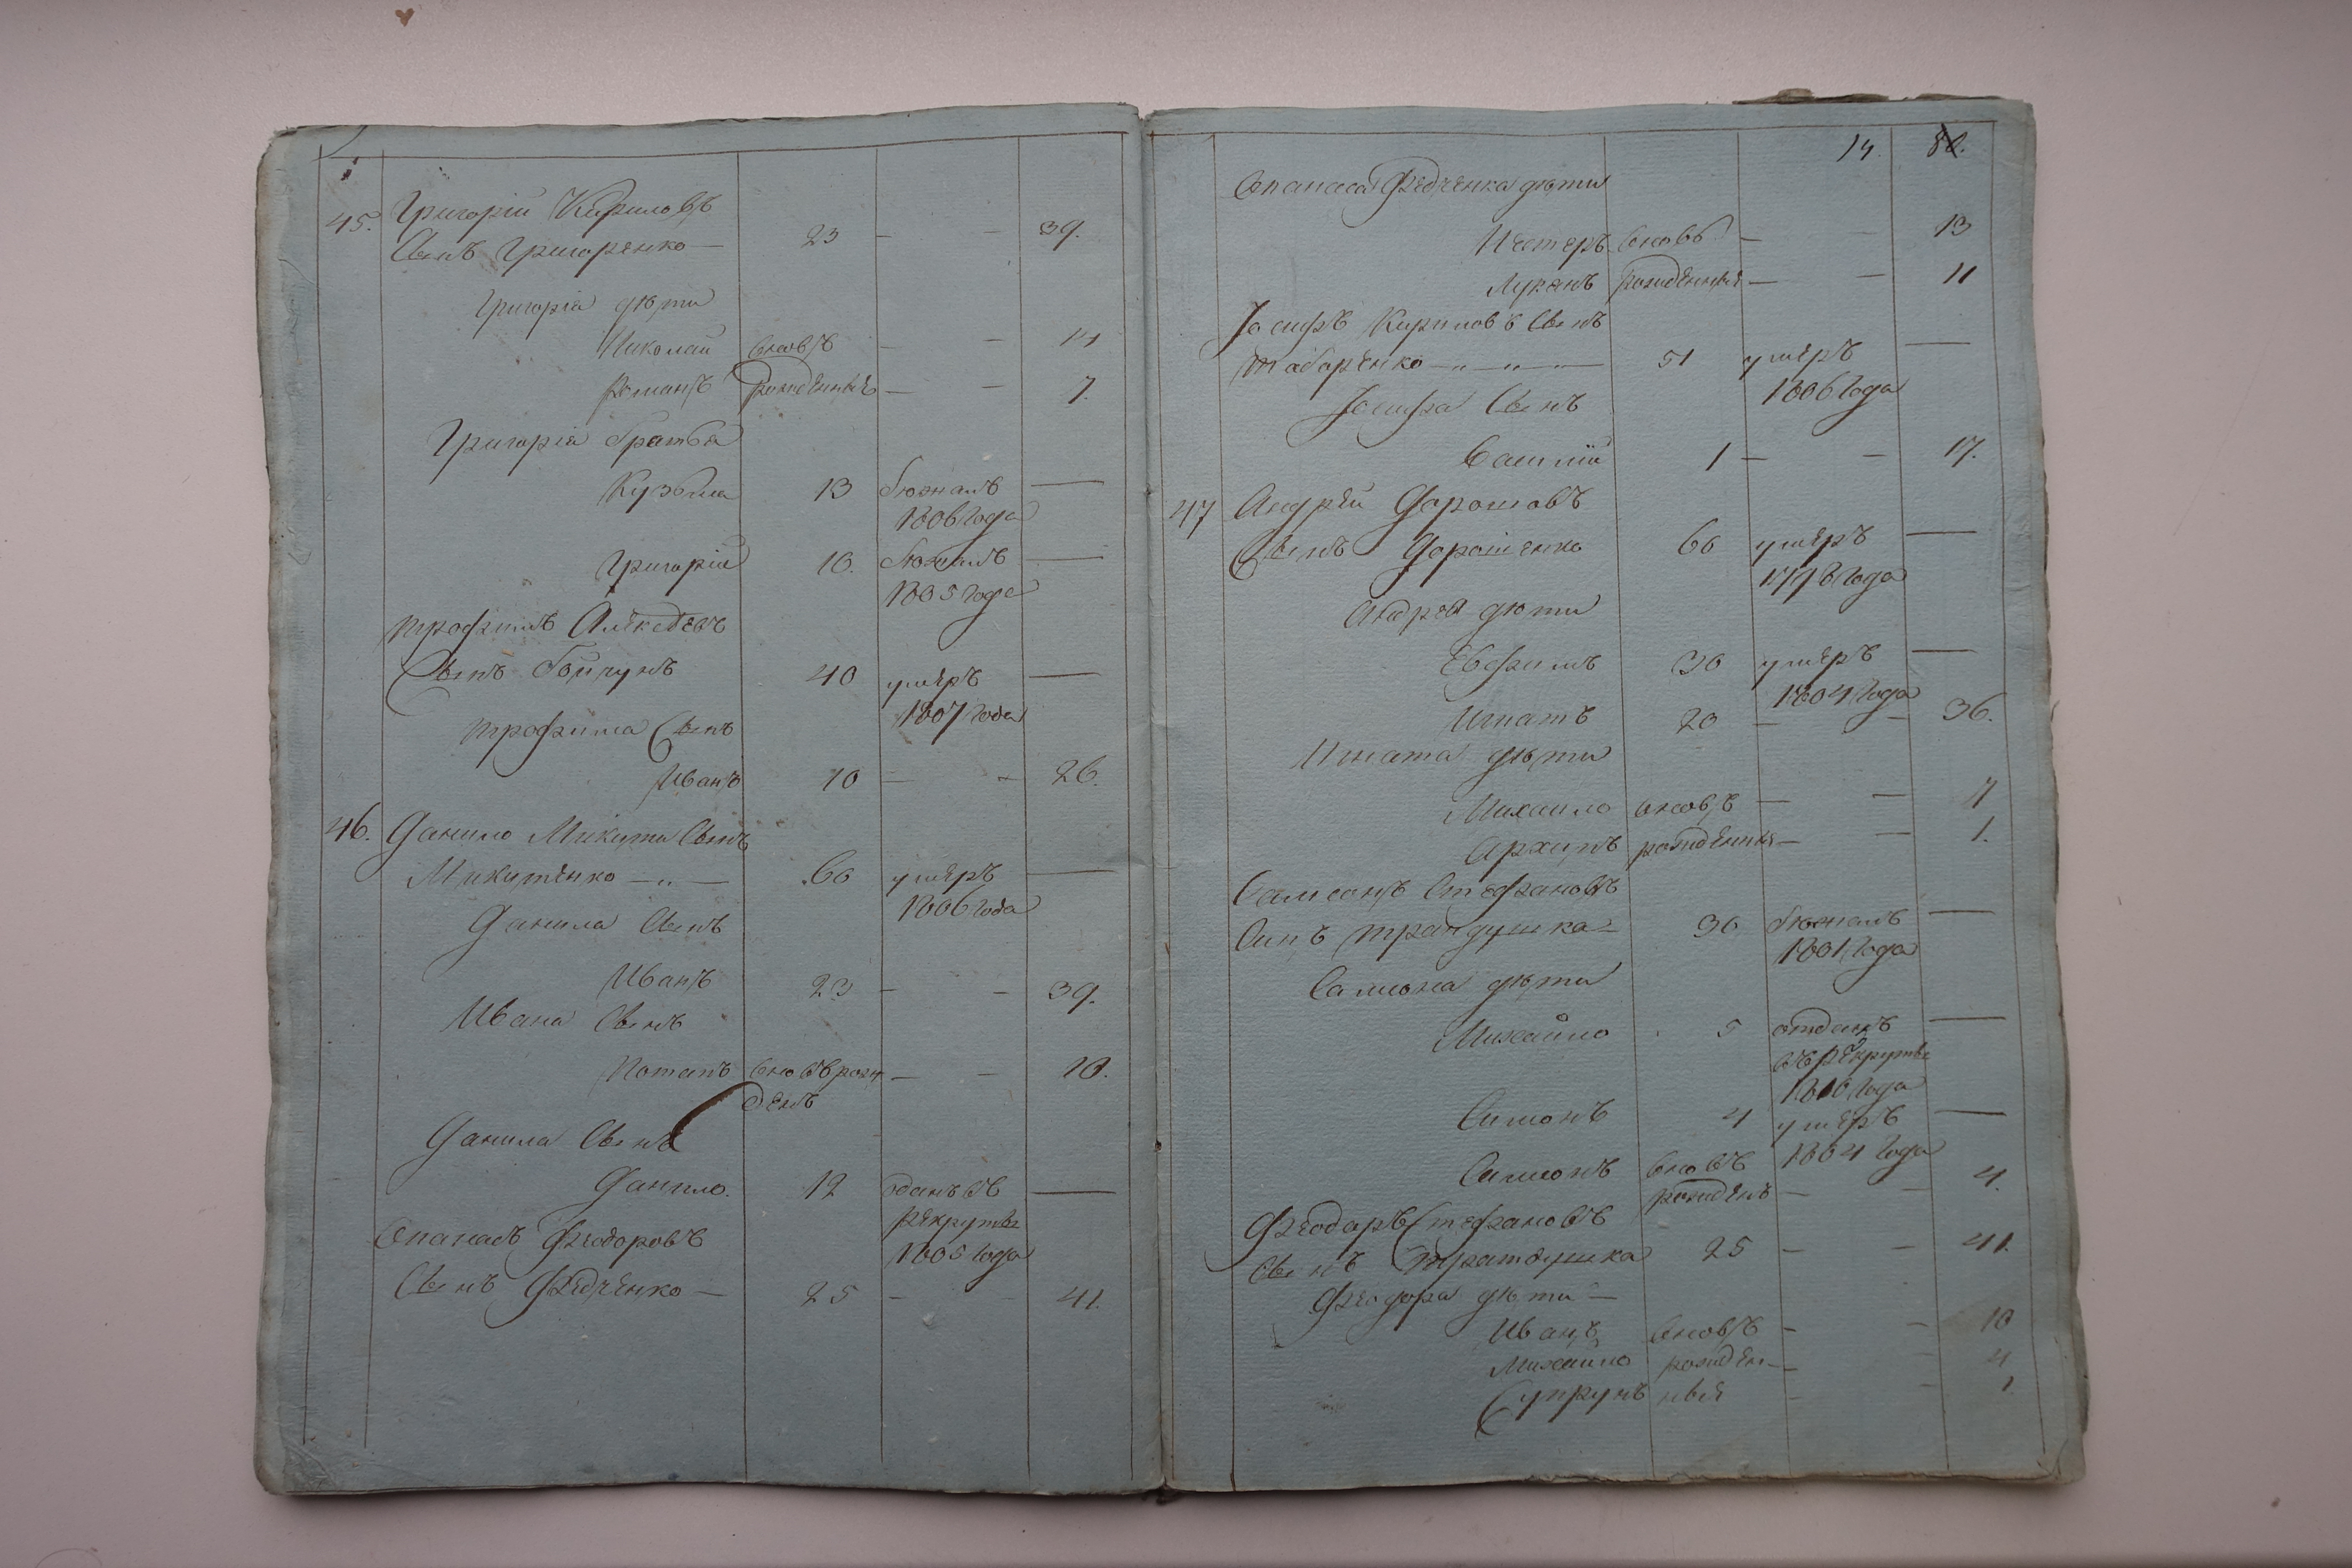 45. Григорій Кириловъ
Сынъ Григоренко — 23 — — 39.
Григорія дѣти
Николай вновь — — 14
Романъ рожденные — — 7.
Григорія братья
Кузьма 13 бѣжалъ —
1806 года
Григорій 10. бѣжалъ —
1805 года
Трофимъ Алексѣевъ
Сынъ Бойчукъ 40 умеръ —
1807 года
Трофима Сынъ
Иванъ 10 — — 26.
46. Данило Микиты Сынъ
Микитенко — „ — 60 умеръ —
1806 года
Данила Сынъ
Иванъ 23 — — 39.
Ивана Сынъ
Потапъ вновь рож — — 10.
денъ
Данила Сынъ
Данило. 12 зданъ въ —
рекруты
1805 года
Опанасъ Феодоровъ
Сынъ Федченко — 25 — — 41.
14. 80.
Опанаса Федченка дѣти
Нестеръ вновь — — 13
Лукянъ рожденные — — 11
Іосифъ Кириловъ Сынъ
Табаренко — „ — „ — 51 умеръ —
1806 года
Іосифа Сынъ
Василій 1 — — 17.
47 Андрей Дорошовъ
Сынъ Дорошенко 60 умеръ —
1798 года
Андрея дѣти
Евфимъ 30 умеръ —
1804 года
Игнатъ 20 — — 36.
Игната дѣти
Михайло вновь — — 7
Архипъ рожденные — — 1.
Самсонъ Стефановъ
Синъ Трандушка — 30 бѣжалъ —
1801 года
Самсона дѣти
Михайло 5 отданъ —
въ рекруты
1810 года
Симонъ 4 умеръ —
1804 года
Симонъ вновь
рожденъ — — 4.
Феодоръ Стефановъ
Сынъ Трандушка 25 — — 41.
Феодора дѣти —
Иванъ вновь — — 10
Михайло рожден — — 4
Супрунъ ные — — 1